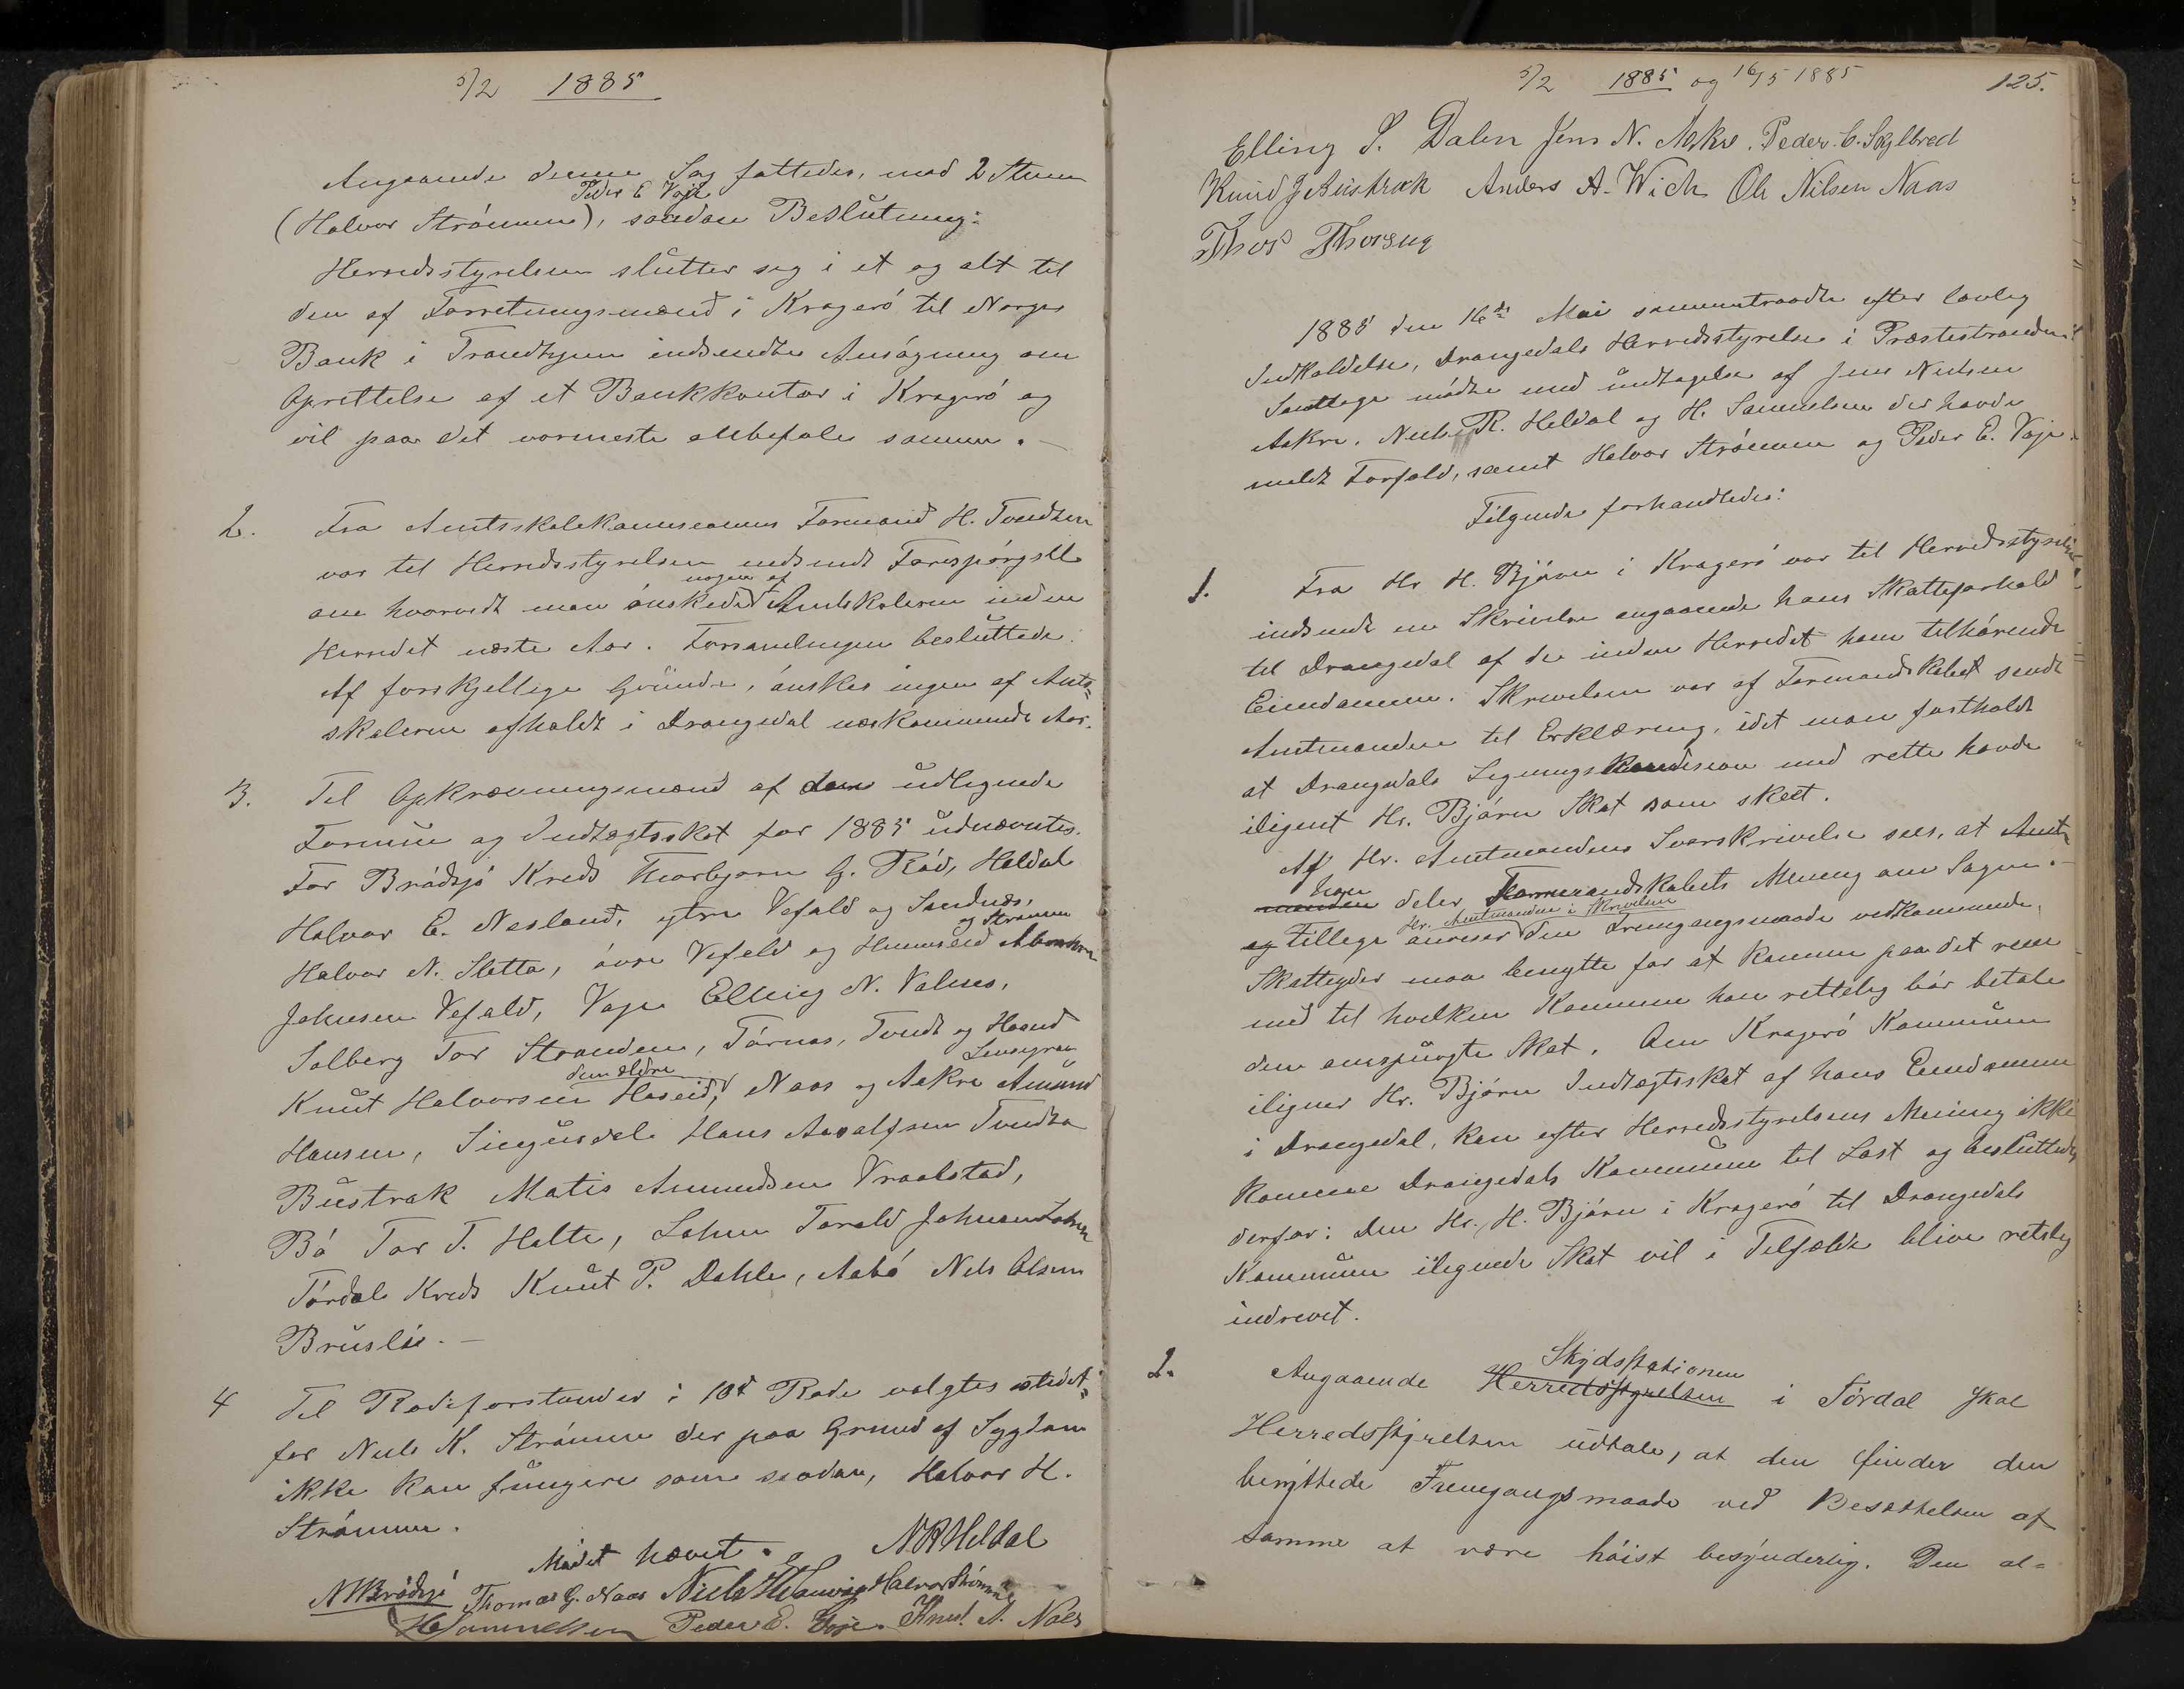 5/2 1885
Angaaende denne Sag fattedes, mod 2 Stemmer
Peder E Voje
(Halvor Strømme), saadan Beslutning:
Herredsstyrelsen slutter sig i et og alt til
den af Forretningsmænd i Kragerø til Norges
Bank i Trondhjem indsendte Ansøgning om
Oprettelse af et Bankkontor i Kragerø og
vil paa det varmeste anbefale samme. —
2. Fra Amtsskolekommisionens Formand H. Tvedten
var til Herredsstyrelsen indsendt Forespørgsel
nogen af
om hvorvidt man ønskede Amtsskolerne inden
Herredet næste Aar. Forsamlingen besluttede:
Af forskjellige Grunde, ønskes ingen af Amts=
skolerne afholdt i Drangedal næstkommende Aar.
3. Til Opkrævningsmænd af den udlignede
Formue og Indtægtsskat for 1885 udnævntes.
For Brødsjø Kreds Thorbjørn G. Rød, Heldal
Halvor E. Nesland, ytre Vefald og Sandnæs,
og Strømme
Halvor N. Sletta, øvre Vefald og Hummeid Abraham
Johnsen Vefald, Voje Elling N. Valnes,
Solberg Tor Stranden, Tørnes, Tvedt og Haand
den ældre Lensgrav
Knut Halvorsen Haseid, Naas og Aakre Amund
Hansen, Singusdal Hans Aasolfsen Tvedten
Bustrak Matis Amundsen Vraalstad,
Bø Tor T. Holte, Lohne Torald Johnsen Lohne
Tørdal Kreds Knut P. Dahle, Aabø Nels Olsen
Bruslie. —
4 Til Rodeforstander i 10d Rode valgtes istedet=
for Neels K. Strømme der paa Grund af Sygdom
ikke kan fungere som saadan, Halvor H.
Strømme.
Mødet hævet. N R Heldal
N Brødsjø Thomas G. Naas Niels Halvor Strømme
H Samuelsen Peder E. Voje. Knut A. Naas
5/2 1885 og 16/5 1885 125.
Elling S. Dalen Jens N. Aakre. Peder C. Skjelbred
Knud J Bustrak Anders A. Wich Ole Nilsen Naas
Thor Thorsen
1885 den 16de Mai sammentraadte efter lovlig
Indkaldelse, Drangedals Herredsstyrelse i Præstestranden.
Samtlige mødte med undtagelse af Jens Neelsen
Aakre, Neels R. Heldal og H. Samuelsen der havde
meldt Forfald, samt Halvor Strømme og Peder E. Voje.
Følgende forhandledes:
1. Fra Hr H. Bjørn i Kragerø var til Herredsstyrelsen
indsendt en Skrivelse angaaende hans Skatteforhold
til Drangedal af de inden Herredet ham tilhørende
Eiendomme. Skrivelsen var af Formandskabet sendt
Amtmanden til Erklæring, idet man fastholdt
at Drangedals Ligningskommision med rette havde
ilignet Hr. Bjørn Skat som skeet.
Af Hr. Amtmandens Svarskrivelse sees, at Amt=
han
manden deler Formandskabets Mening om Sagen. —
Hr. Amtmanden i Skrivelsen
og Tillige anviser den Fremgangsmaade vedkommende
Skatteyder maa benytte for at komme paa det rene
med til hvilken Kommune han rettelig bør betale
den omspurgte Skat. Om Kragerø Kommune
iligner Hr. Bjørn Indtægtsskat af hans Eiendomme
i Drangedal, kan efter Herredsstyrelsens Mening ikke
komme Drangedals Kommune til Last og besluttedes
derfor: Den Hr. H. Bjørn i Kragerø til Drangedals
Kommune ilignede Skat vil i Tilfælde blive retslig
indrevet.
2. Skydsstationen
Angaaende Herredsstyrelsen i Tørdal skal
Herredsstyrelsen udtale, at den finder den
benyttede Fremgangsmaade ved Besættelsen af
samme at være høist besynderlig. Den al=